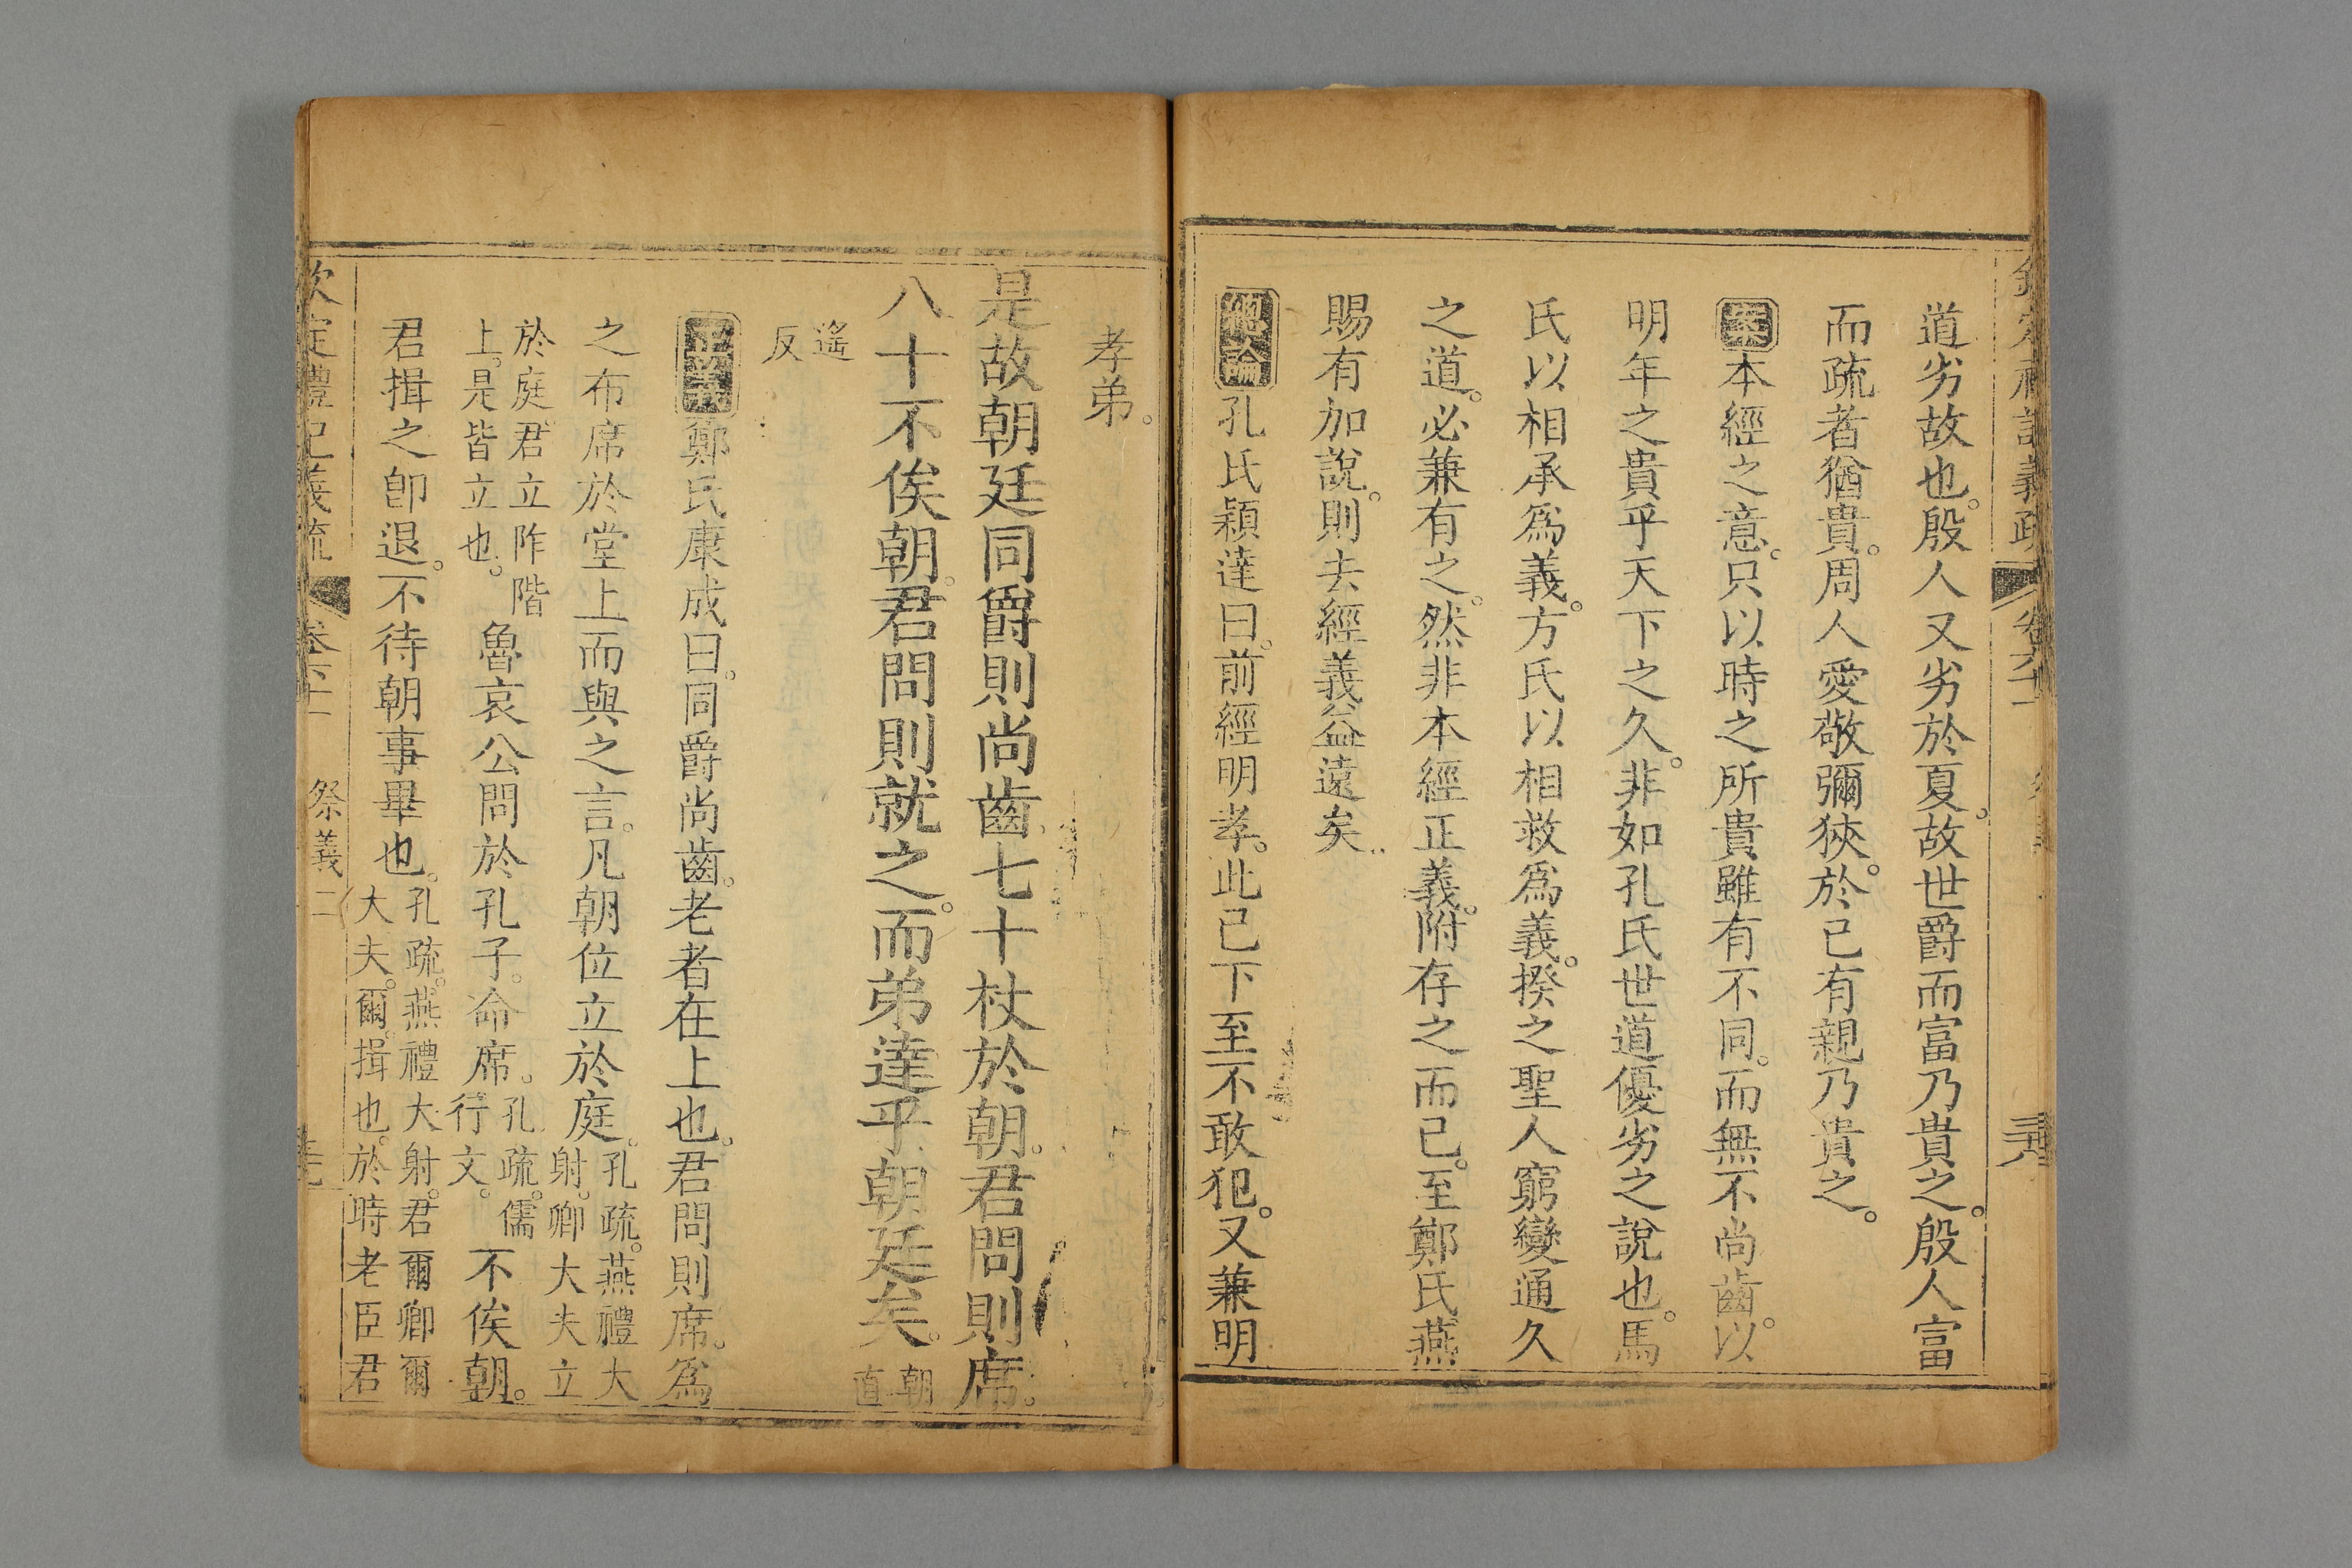 道劣故也。殷人又劣於夏。故世爵而富乃貴之。殷人富
而疏者猶貴。周人愛敬彌狹。於己有親乃貴之。
案本經之意。只以時之所貴雖有不同。而無不尚齒。以
明年之貴乎天下之久。非如孔氏世道優劣之說也。馬
氏以相承爲義。方氏以相救爲義。揆之聖人窮變通久
之道。必兼有之。然非本經正義。附存之而已。至鄭氏燕
賜有加說。則去經義益遠矣
總論孔氏穎達曰。前經明孝。此已下至不敢犯。又兼明
孝弟。
是故朝廷同爵則尚齒。七十杖於朝。君問則席。
八十不俟朝。君問則就之。而弟達乎朝廷矣。朝直
遙反
正義鄭氏康成曰。同爵尚齒。老者在上也。君問則席。爲
之布席於堂上而與之言。凡朝位立於庭。孔疏。燕禮大射。卿大夫立
於庭。君立阼階上。是皆立也。魯哀公問於孔子。命席。孔疏。儒行文。不俟朝。
君揖之卽退。不待朝事畢也。孔疏。燕禮大射。君爾卿爾大夫。爾。揖也。於時老臣君
欽定禮記義疏 卷六十一 祭義二